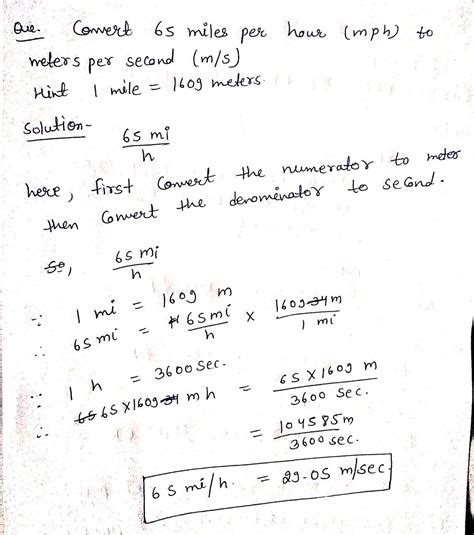 Que. Convert 65 miles per hour (mph) to
meters per second (m/s)
Hint 1 mile = 1609 meters.
Solution-
65 mi
h
here, first Convert the numerator to meter
then Convert the denominator to second.
So, 65 mi
h
∵ 1 mi = 1609 m
∴ 65 mi = 65 mi/h × 1609 m/1 mi
∵ 1 h = 3600 sec.
∴ 65×1609 m h = 65×1609 m/3600 sec.
= 104585m/3600 sec.
65 mi/h. = 29.05 m/sec.